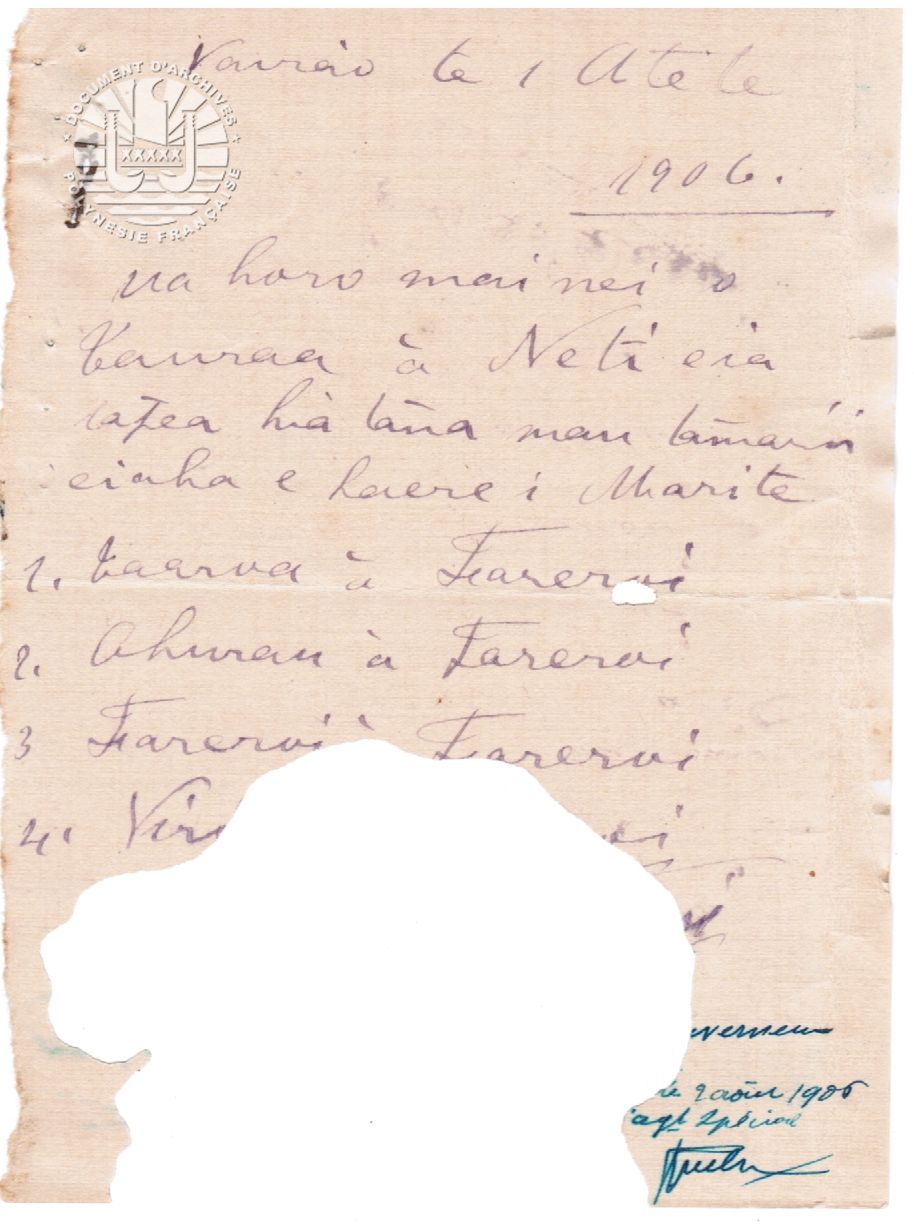 DOCUMENT D'ARCHIVES
XXXXX
POLYNESIE FRANÇAISE
Vairao te 1 Atete
1906.
ua horo mai nei o
Tauraa à Neti eia
tapea hia tāna mau tāmarii
eiaha e haere i Marite
1. Taaroa à Fareroi
2. Ahurau à Fareroi
3 Fareroi à Fareroi
4. Vir
oi
uverneur
le 2 août 1906
l'agt Spécial